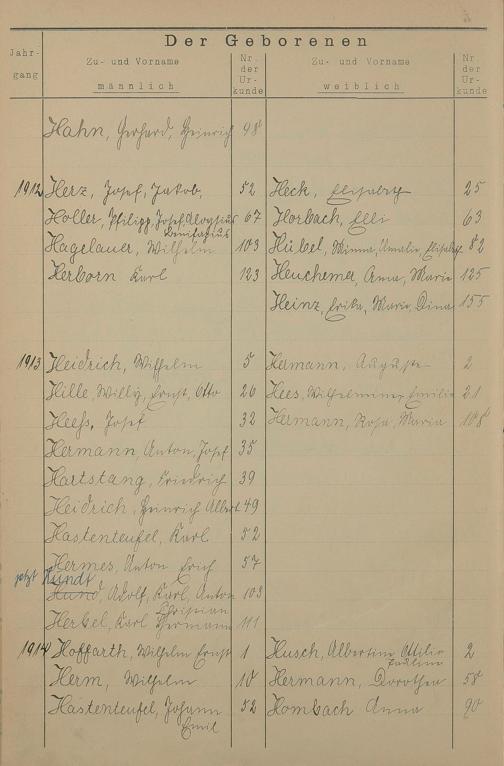 Der Geborenen
Jahr-
gang
Zu- und Vorname
männlich
Nr.
der
Ur-
kunde
Zu- und Vorname
weiblich
Nr.
der
Ur-
kunde
Hahn, Gerhard, Heinrich 98
1912 Herz, Josef, Jakob, 52 Heck, Elisabeth 25
Holler, Philipp, Josef, Aloysius 67 Horbach, Elli 63
Bonifazius
Hagelauer, Wilhelm 103 Hübel, Minna, Amalie, Elisabeth 82
Herborn Karl 123 Heuchemer, Anna, Marie 125
Heinz, Erika, Marie, Dina 155
1913 Heidrich, Wilhelm 5 Hermann, Auguste 2
Hille, Willy, Ernst, Otto 26 Hees, Wilhelmine, Emilie 21
Heehs, Josef 32 Hermann, Rosa, Maria 108
Hermann, Anton, Josef 35
Hartstang, Friedrich 39
Heidrich, Heinrich Albert 49
Hastenteufel, Karl 52
Hermes, Anton Erich 57
jetzt Kundt
Hund, Adolf, Karl, Anton 103
Christian
Herbel, Karl Hermann 111
1914 Hoffarth, Wilhelm Ernst 1 Husch, Albertine Ottilie 2
Pauline
Herm, Wilhelm 10 Hermann, Dorothea 58
Hastenteufel, Johann 52 Hombach Anna 90
Emil